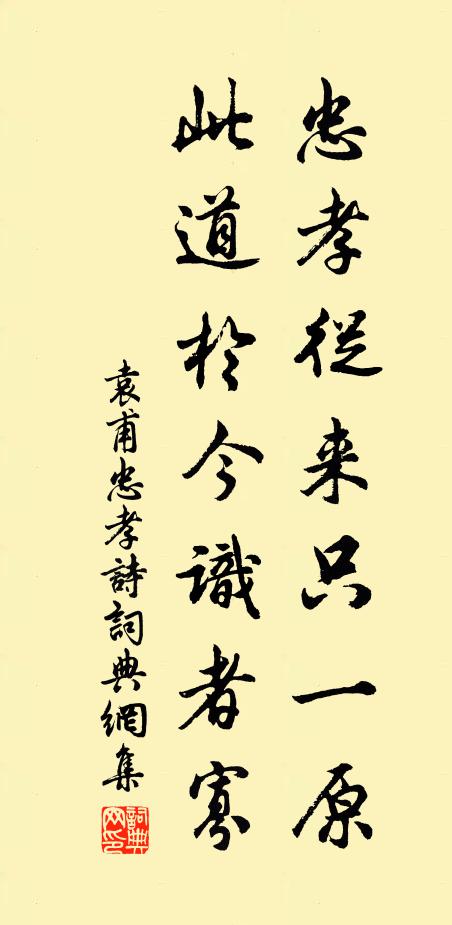 忠孝從来只一原
此道於今識者寡
袁甫忠孝詩詞典網集
詞典
网印